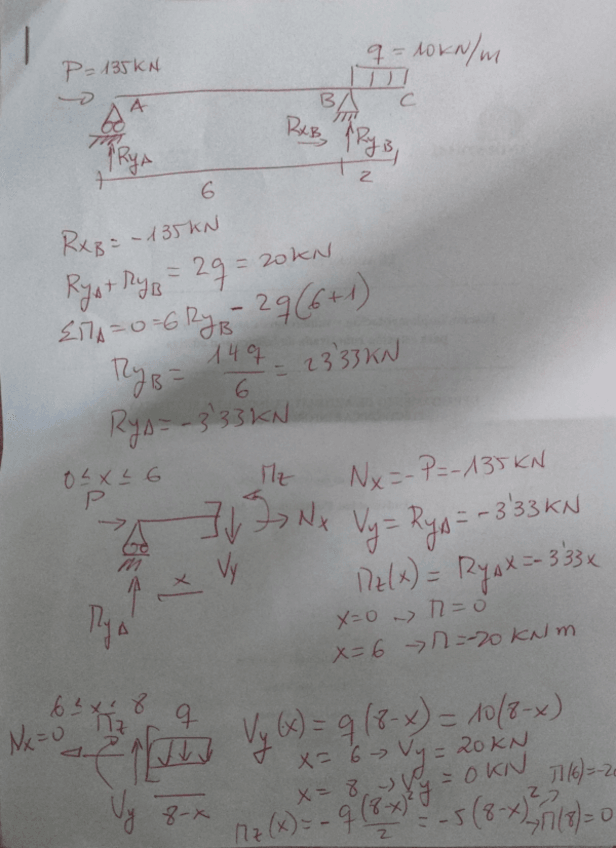 1
q = 10 KN/m
P = 135 KN
A
B
C
RxB
RyA
RyB
6
2
RxB = -135 KN
RyA + RyB = 2q = 20 KN
ΣMA = 0 = 6 RyB - 2q(6+1)
RyB = 14q/6 = 23'33 KN
RyA = -3'33 KN
0 ≤ x ≤ 6
P
Mz
Nx
Vy
x
RyA
Nx = -P = -135 KN
Vy = RyA = -3'33 KN
Mz(x) = RyA x = -3'33 x
x = 0 → M = 0
x = 6 → M = -20 KN m
6 ≤ x ≤ 8
Nx = 0
Mz
q
Vy
8-x
Vy(x) = q(8-x) = 10(8-x)
x = 6 → Vy = 20 KN
x = 8 → Vy = 0 KN
Mz(x) = -q (8-x)²/2 = -5(8-x)²
M(6) = -20
→ M(8) = 0